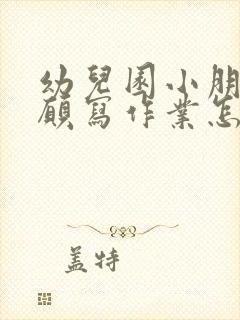 幼兒園小朋
願寫作業怎
蓋特